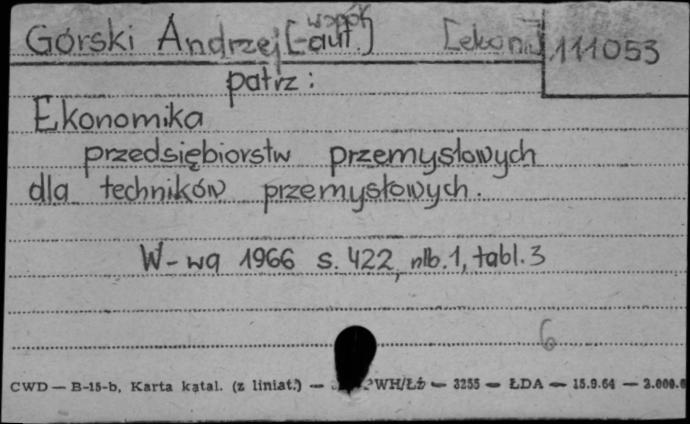 współ
Górski Andrzej [-aut.] [ekon.] 111053
patrz:
Ekonomika
przedsiębiorstw przemysłowych
dla techników przemysłowych.
W-wa 1966 s. 422, nlb. 1, tabl. 3
6
CWD — B-15-b, Karta katal. (z liniat.) — PWH/Łż — 3255 — ŁDA — 15.9.64 — 3.000.0